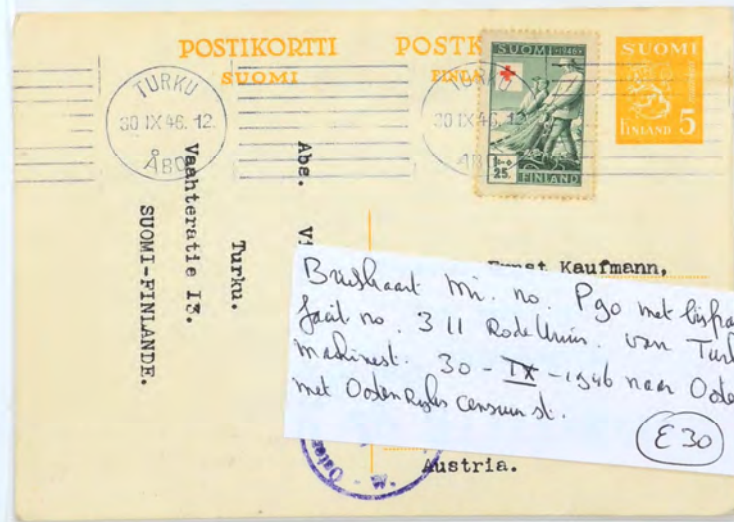 POSTIKORTTI
SUOMI
POSTK
FINLA
TURKU
30 IX 46. 12.
ÅBO
TURKU
30 IX 46. 12.
SUOMI 1946
1:-+0
25.
FINLAND
SUOMI
FINLAND 5
Abs. VI
Turku.
Vaahteratie I3.
SUOMI-FINLANDE.
Ernst Kaufmann,
Briefkaart Mi. no. P90 met bijfra
facit no. 311 Rode Kruis. van Turk
Makinest. 30 - IX - 1946 naar Oosten
met Oostenrijks censuur st.
E30
Austria.